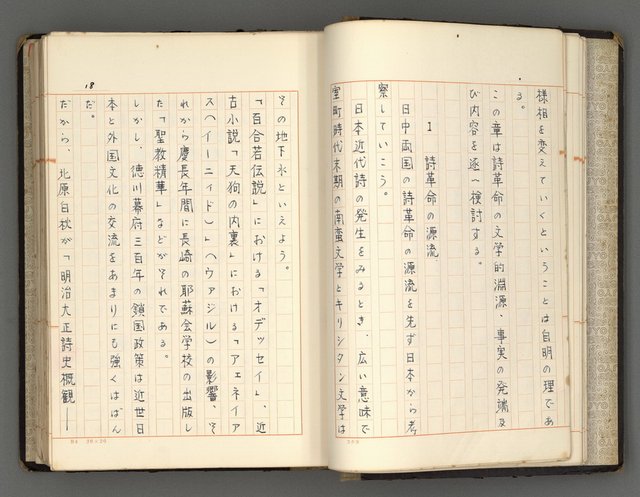 様相を変えていくということは自明の理であ
る。
この章は詩革命の文学的淵源、事実の発端及
び内容を逐べ検討する。
I 詩革命の源流
日中両国の詩革命の源流を先ず日本から考
察していこう。
日本近代詩の発生をみるとき、広い意味で
室町時代末期の南蛮文学とキリシタン文学は
18
その地下水といえよう。
「百合若伝説」における「オデッセイ」、近
古小説「天狗の内裏」における「アェネイア
ス(イーニィド)」(ヴァジル)の影響、そ
れから慶長年間に長崎の耶蘇会学校の出版し
た「聖教精華」などがそれである。
しかし、徳川幕府三百年の鎖国政策は近世日
本と外国文化の交流をあまりにも強くはばん
だ。
だから、北原白秋が「明治大正詩史概観——
B4 20×20